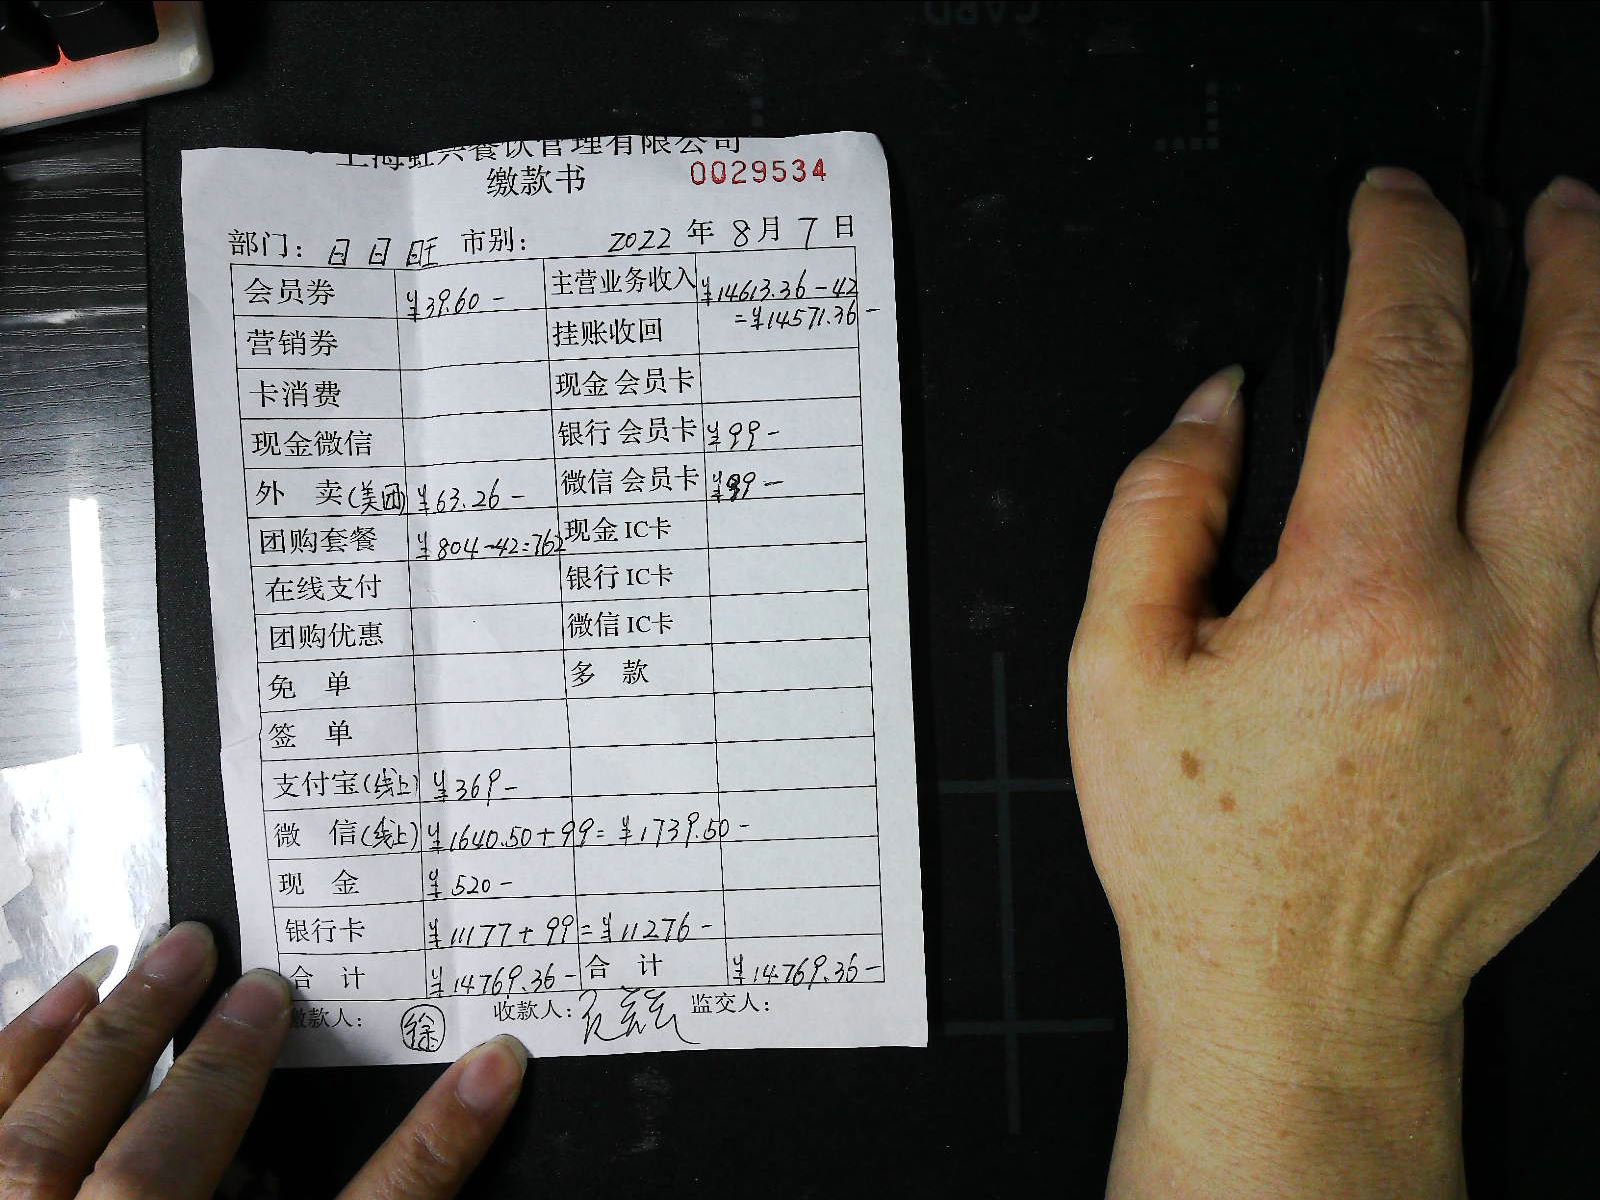 上海虹兴餐饮管理有限公司
缴款书 0029534
部门: 日日旺 市别: 2022 年 8 月 7 日
会员券 ¥39.60- 主营业务收入 ¥14613.36-42
营销券 挂账收回 =¥14571.36-
卡消费 现金 会员卡
现金微信 银行 会员卡 ¥99-
外 卖(美团) ¥63.26- 微信 会员卡 ¥99-
团购套餐 ¥804-42=762 现金 IC卡
在线支付 银行 IC卡
团购优惠 微信 IC卡
免 单 多 款
签 单
支付宝(线上) ¥369-
微 信(线上) ¥1640.50+99=¥1739.50-
现 金 ¥520-
银行卡 ¥11177+99=¥11276-
合 计 ¥14769.36- 合 计 ¥14769.36-
缴款人: 徐 收款人: 监交人: